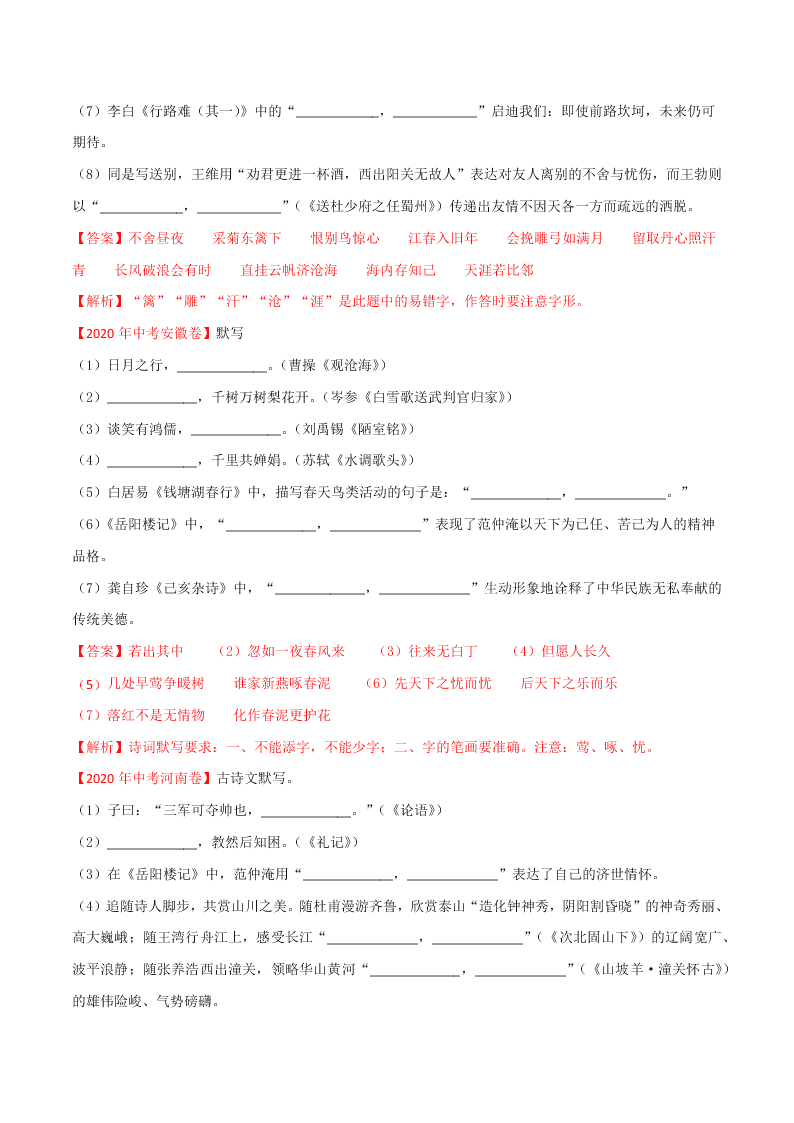 （7）李白《行路难（其一）》中的“____________，____________”启迪我们：即使前路坎坷，未来仍可
期待。
（8）同是写送别，王维用“劝君更进一杯酒，西出阳关无故人”表达对友人离别的不舍与忧伤，而王勃则
以“____________，____________”（《送杜少府之任蜀州》）传递出友情不因天各一方而疏远的洒脱。
【答案】不舍昼夜　　采菊东篱下　　恨别鸟惊心　　江春入旧年　　会挽雕弓如满月　　留取丹心照汗
青　　长风破浪会有时　　直挂云帆济沧海　　海内存知己　　天涯若比邻
【解析】“篱”“雕”“汗”“沧”“涯”是此题中的易错字，作答时要注意字形。
【2020 年中考安徽卷】默写
（1）日月之行，_____________。（曹操《观沧海》）
（2）_____________，千树万树梨花开。（岑参《白雪歌送武判官归家》）
（3）谈笑有鸿儒，_____________。（刘禹锡《陋室铭》）
（4）_____________，千里共婵娟。（苏轼《水调歌头》）
（5）白居易《钱塘湖春行》中，描写春天鸟类活动的句子是：“_____________，_____________。”
（6）《岳阳楼记》中，“_____________，_____________”表现了范仲淹以天下为已任、苦己为人的精神
品格。
（7）龚自珍《己亥杂诗》中，“_____________，_____________”生动形象地诠释了中华民族无私奉献的
传统美德。
【答案】若出其中　　（2）忽如一夜春风来　　（3）往来无白丁　　（4）但愿人长久
（5）几处早莺争暖树　　谁家新燕啄春泥　　（6）先天下之忧而忧　　后天下之乐而乐
（7）落红不是无情物　　化作春泥更护花
【解析】诗词默写要求：一、不能添字，不能少字；二、字的笔画要准确。注意：莺、啄、忧。
【2020 年中考河南卷】古诗文默写。
（1）子曰：“三军可夺帅也，_____________。”（《论语》）
（2）_____________，教然后知困。（《礼记》）
（3）在《岳阳楼记》中，范仲淹用“_____________，_____________”表达了自己的济世情怀。
（4）追随诗人脚步，共赏山川之美。随杜甫漫游齐鲁，欣赏泰山“造化钟神秀，阴阳割昏晓”的神奇秀丽、
高大巍峨；随王湾行舟江上，感受长江“_____________，_____________”（《次北固山下》）的辽阔宽广、
波平浪静；随张养浩西出潼关，领略华山黄河“_____________，_____________”（《山坡羊·潼关怀古》）
的雄伟险峻、气势磅礴。